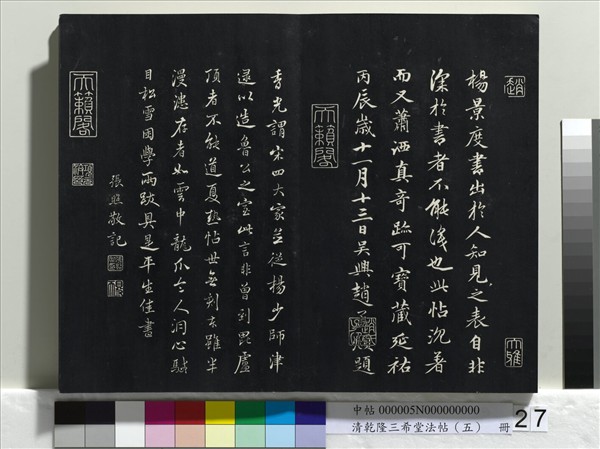 趙
楊景度書出於人知見之表自非
深於書者不能識也此帖沉著
而又蕭洒真奇跡可寶藏延祐
丙辰歲十一月十三日吳興趙孟題
大雅
天籟閣
香光謂宋四大家並從楊少師津
逮以造魯公之室此言非曾到毘盧
頂者不能道夏熱帖世無刻本雖半
漫漶在者如雲中龍爪令人洞心駴
目松雪困學兩跋具是平生佳書
張照敬記
天籟閣
中帖 000005N000000000
清乾隆三希堂法帖（五） 冊
27